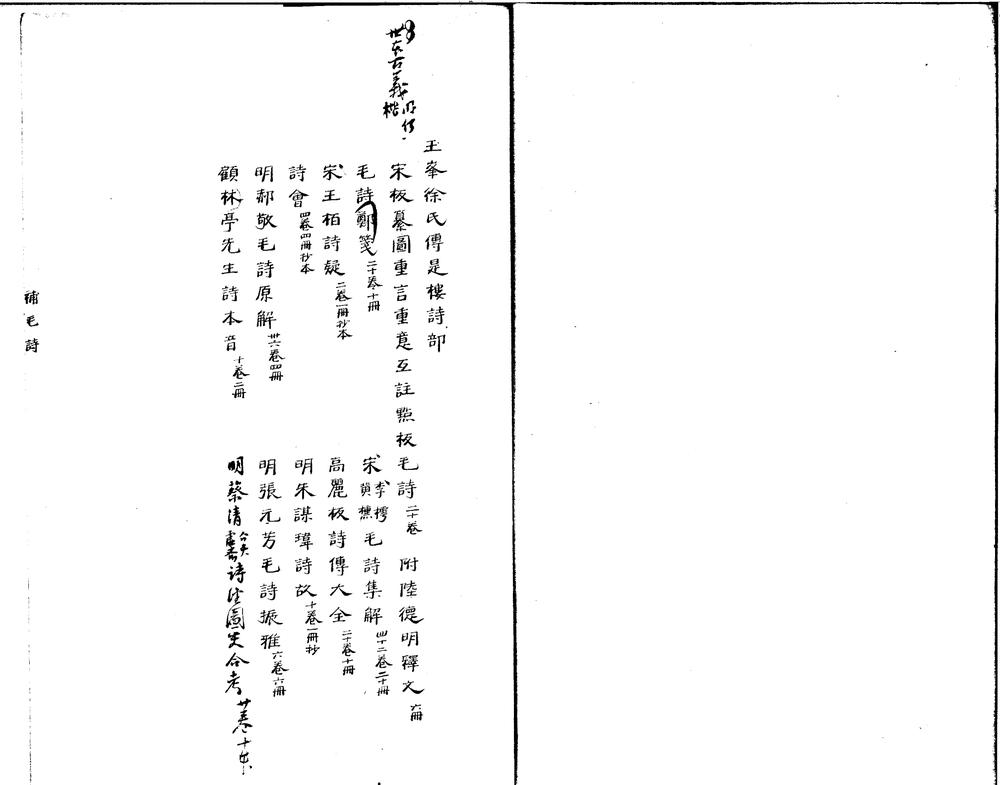 世本古義
楷
王峯徐氏傳是樓詩部
宋板纂圖重言重意互註點板毛詩二十卷 附陸德明釋文六冊
毛詩鄭箋二十卷十冊
宋李樗黃櫄毛詩集解四十二卷二十冊
宋王栢詩疑二卷一冊抄本
高麗板詩傳大全二十卷十冊
詩會四卷四冊抄本
明朱謀㙔詩故十卷一冊抄
明郝敬毛詩原解卅六卷四冊
明張元芳毛詩振雅六卷六冊
顧林亭先生詩本音十卷二冊
明蔡清虛齋詩圖史合考廿卷十本
補毛詩